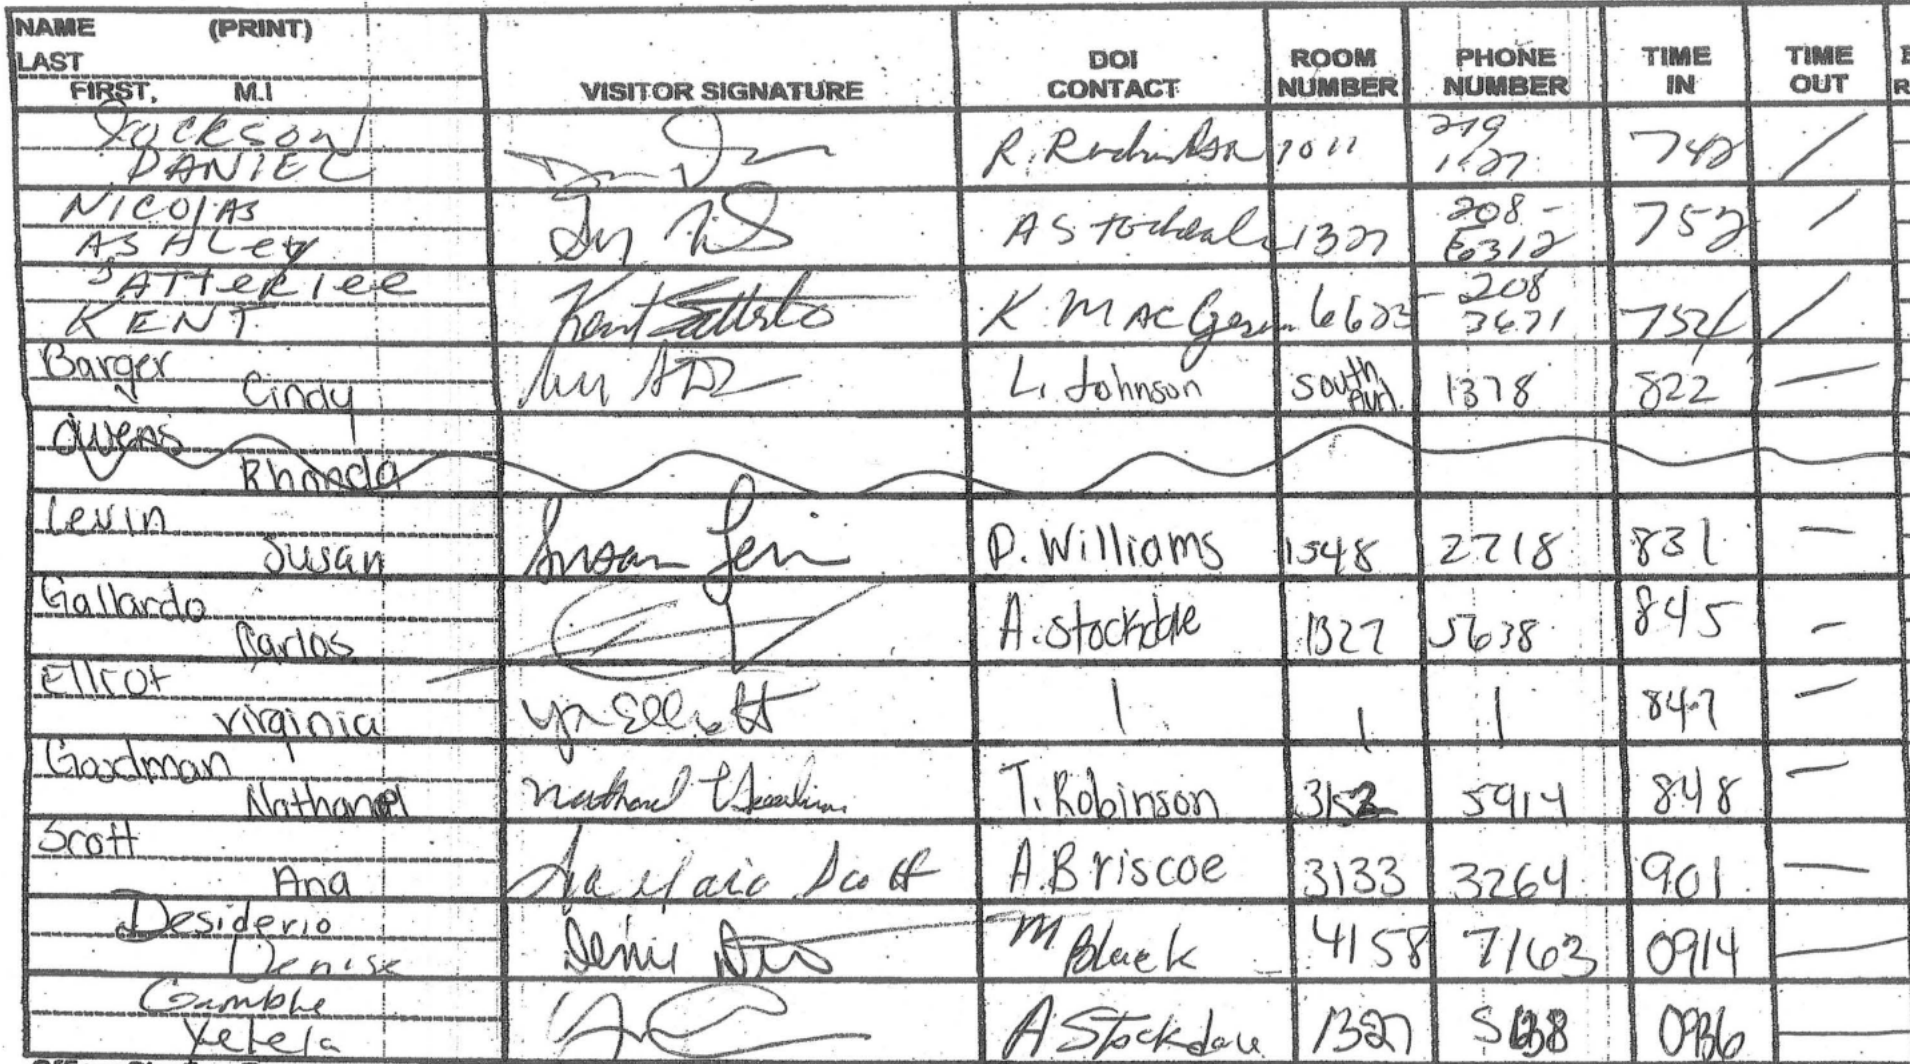 NAME (PRINT)
LAST
FIRST, M.I
VISITOR SIGNATURE
DOI CONTACT
ROOM NUMBER
PHONE NUMBER
TIME IN
TIME OUT
Jackson
DANIEL 1011 742
NICOLAS
ASHLEY 1327 208- 6312 752
SATTERLEE
KENT Kent K. MAC 6623 208 3671 754
Barger
Cindy L. Johnson South 1378 822
Owens
Rhonda
Levin
Susan Susan D. Williams 1548 2718 831
Gallardo
Carlos A. Stockdale 1327 5638 845
Elliot
Virginia 847
Goodman
Nathaniel T. Robinson 3152 5914 848
Scott
Ana Scott A. Briscoe 3133 3264 901
Desiderio
Denise M Black 4158 7163 0914
Yetela A Stockdale 1327 5638 0936